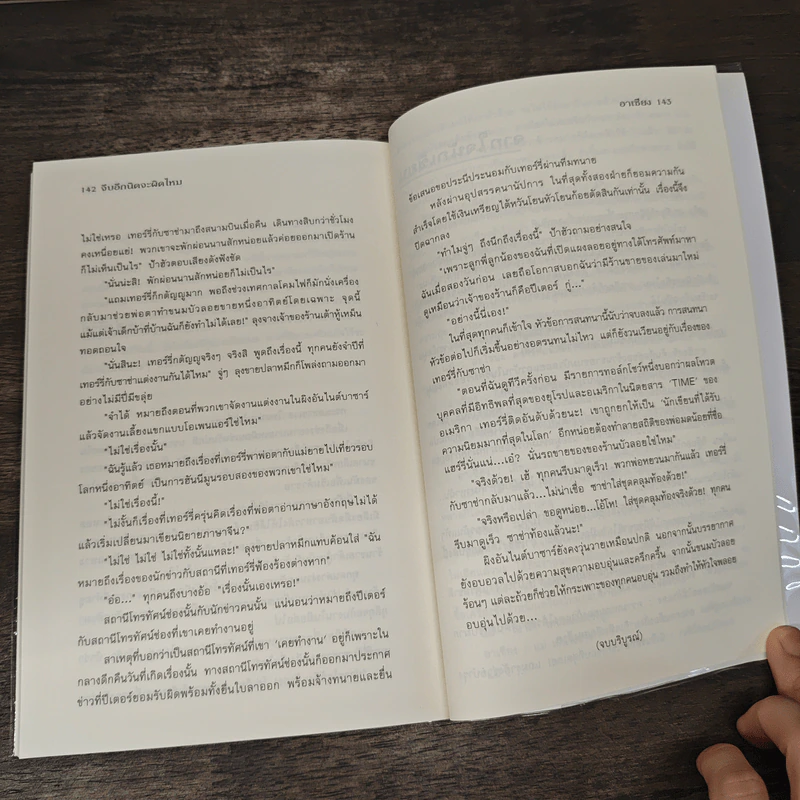 142 จีบอีกนิดจะผิดไหม
ไม่ใช่เหรอ เทอร์รี่กับซาช่ามาถึงสนามบินเมื่อคืน เดินทางสิบกว่าชั่วโมง
คงเหนื่อยแย่! พวกเขาจะพักผ่อนนานสักหน่อยแล้วค่อยออกมาเปิดร้าน
ก็ไม่เห็นเป็นไร" ป้าฮัวตอบเสียงดังฟังชัด
"นั่นน่ะสิ! พักผ่อนนานสักหน่อยก็ไม่เป็นไร"
"แถมเทอร์รี่ก็กตัญญูมาก พอถึงช่วงเทศกาลโคมไฟก็มักนั่งเครื่อง
กลับมาช่วยพ่อตาทำขนมบัวลอยขายหนึ่งอาทิตย์โดยเฉพาะ จุดนี้
แม้แต่เจ้าเด็กบ้าที่บ้านฉันก็ยังทำไม่ได้เลย!" ลุงจางเจ้าของร้านเต้าหู้เหม็น
ทอดถอนใจ
"นั่นสินะ! เทอร์รี่กตัญญูจริงๆ จริงสิ พูดถึงเรื่องนี้ ทุกคนยังจำปีที่
เทอร์รี่กับซาช่าแต่งงานกันได้ไหม" จู่ๆ ลุงขายปลาหมึกก็โพล่งถามออกมา
อย่างไม่มีปี่มีขลุ่ย
"จำได้ หมายถึงตอนที่พวกเขาจัดงานแต่งงานในผิงอันไนต์บาซาร์
แล้วจัดงานเลี้ยงแขกแบบโอเพนแอร์ใช่ไหม"
"ไม่ใช่เรื่องนั้น"
"ฉันรู้แล้ว เธอหมายถึงเรื่องที่เทอร์รี่พาพ่อตากับแม่ยายไปเที่ยวรอบ
โลกหนึ่งอาทิตย์ เป็นการฮันนีมูนรอบสองของพวกเขาใช่ไหม"
"ไม่ใช่เรื่องนี้!"
"ไม่งั้นก็เรื่องที่เทอร์รี่ครุ่นคิดเรื่องที่พ่อตาอ่านภาษาอังกฤษไม่ได้
แล้วเริ่มเปลี่ยนมาเขียนนิยายภาษาจีน?"
"ไม่ใช่ ไม่ใช่ ไม่ใช่ทั้งนั้นแหละ!" ลุงขายปลาหมึกแทบค้อนใส่ "ฉัน
หมายถึงเรื่องของนักข่าวกับสถานีที่เทอร์รี่ฟ้องร้องต่างหาก"
"อ๋อ..." ทุกคนถึงบางอ้อ "เรื่องนั้นเองเหรอ!"
สถานีโทรทัศน์ช่องนั้นกับนักข่าวคนนั้น แน่นอนว่าหมายถึงปีเตอร์
กับสถานีโทรทัศน์ช่องที่เขาเคยทำงานอยู่
สาเหตุที่บอกว่าเป็นสถานีโทรทัศน์ที่เขา 'เคยทำงาน' อยู่ก็เพราะใน
กลางดึกคืนวันที่เกิดเรื่องนั้น ทางสถานีโทรทัศน์ช่องนั้นก็ออกมาประกาศ
ข่าวที่ปีเตอร์ยอมรับผิดพร้อมทั้งยื่นใบลาออก พร้อมจ้างทนายและยื่น
อาเซียง 143
ข้อเสนอขอประนีประนอมกับเทอร์รี่ผ่านทีมทนาย
หลังผ่านอุปสรรคนานัปการ ในที่สุดทั้งสองฝ่ายก็ยอมความกัน
สำเร็จโดยใช้เงินเหรียญไต้หวันโยนหัวโยนก้อยตัดสินกันเท่านั้น เรื่องนี้จึง
ปิดฉากลง
"ทำไมจู่ๆ ถึงนึกถึงเรื่องนี้" ป้าฮัวถามอย่างสนใจ
"เพราะลูกพี่ลูกน้องของฉันที่เปิดแผงลอยอยู่ทางใต้โทรศัพท์มาหา
ฉันเมื่อสองวันก่อน เลยถือโอกาสบอกฉันว่ามีร้านขายของเล่นมาใหม่
ดูเหมือนว่าเจ้าของร้านก็คือปีเตอร์ กู่..."
"อย่างนี้นี่เอง!"
ในที่สุดทุกคนก็เข้าใจ หัวข้อการสนทนานี้นับว่าจบลงแล้ว การสนทนา
หัวข้อต่อไปก็เริ่มขึ้นอย่างอดรนทนไม่ไหว แต่ก็ยังวนเวียนอยู่กับเรื่องของ
เทอร์รี่กับซาช่า
"ตอนที่ฉันดูทีวีครั้งก่อน มีรายการทอล์กโชว์หนึ่งบอกว่าผลโหวต
บุคคลที่มีอิทธิพลที่สุดของยุโรปและอเมริกาในนิตยสาร 'TIME' ของ
อเมริกา เทอร์รี่ติดอันดับด้วยนะ! เขาถูกยกให้เป็น 'นักเขียนที่ได้รับ
ความนิยมมากที่สุดในโลก' อีกหน่อยต้องทำลายสถิติของพ่อมดน้อยที่ชื่อ
แฮร์รี่นั่นแน่...เอ๋? นั่นรถขายของของร้านบัวลอยใช่ไหม"
"จริงด้วย! เฮ้ ทุกคนรีบมาดูเร็ว! พวกพ่อหยวนมากันแล้ว เทอร์รี่
กับซาช่ากลับมาแล้ว...ไม่น่าเชื่อ ซาช่าใส่ชุดคลุมท้องด้วย!"
"จริงหรือเปล่า ขอดูหน่อย...โอ้โห! ใส่ชุดคลุมท้องจริงด้วย! ทุกคน
รีบมาดูเร็ว ซาช่าท้องแล้วนะ!"
ผิงอันไนต์บาซาร์ยังคงวุ่นวายเหมือนปกติ นอกจากนั้นบรรยากาศ
ยังอบอวลไปด้วยความสุขความอบอุ่นและครึกครื้น จากนั้นขนมบัวลอย
ร้อนๆ แต่ละถ้วยก็ช่วยให้กระเพาะของทุกคนอบอุ่น รวมถึงทำให้หัวใจพลอย
อบอุ่นไปด้วย...
(จบบริบูรณ์)